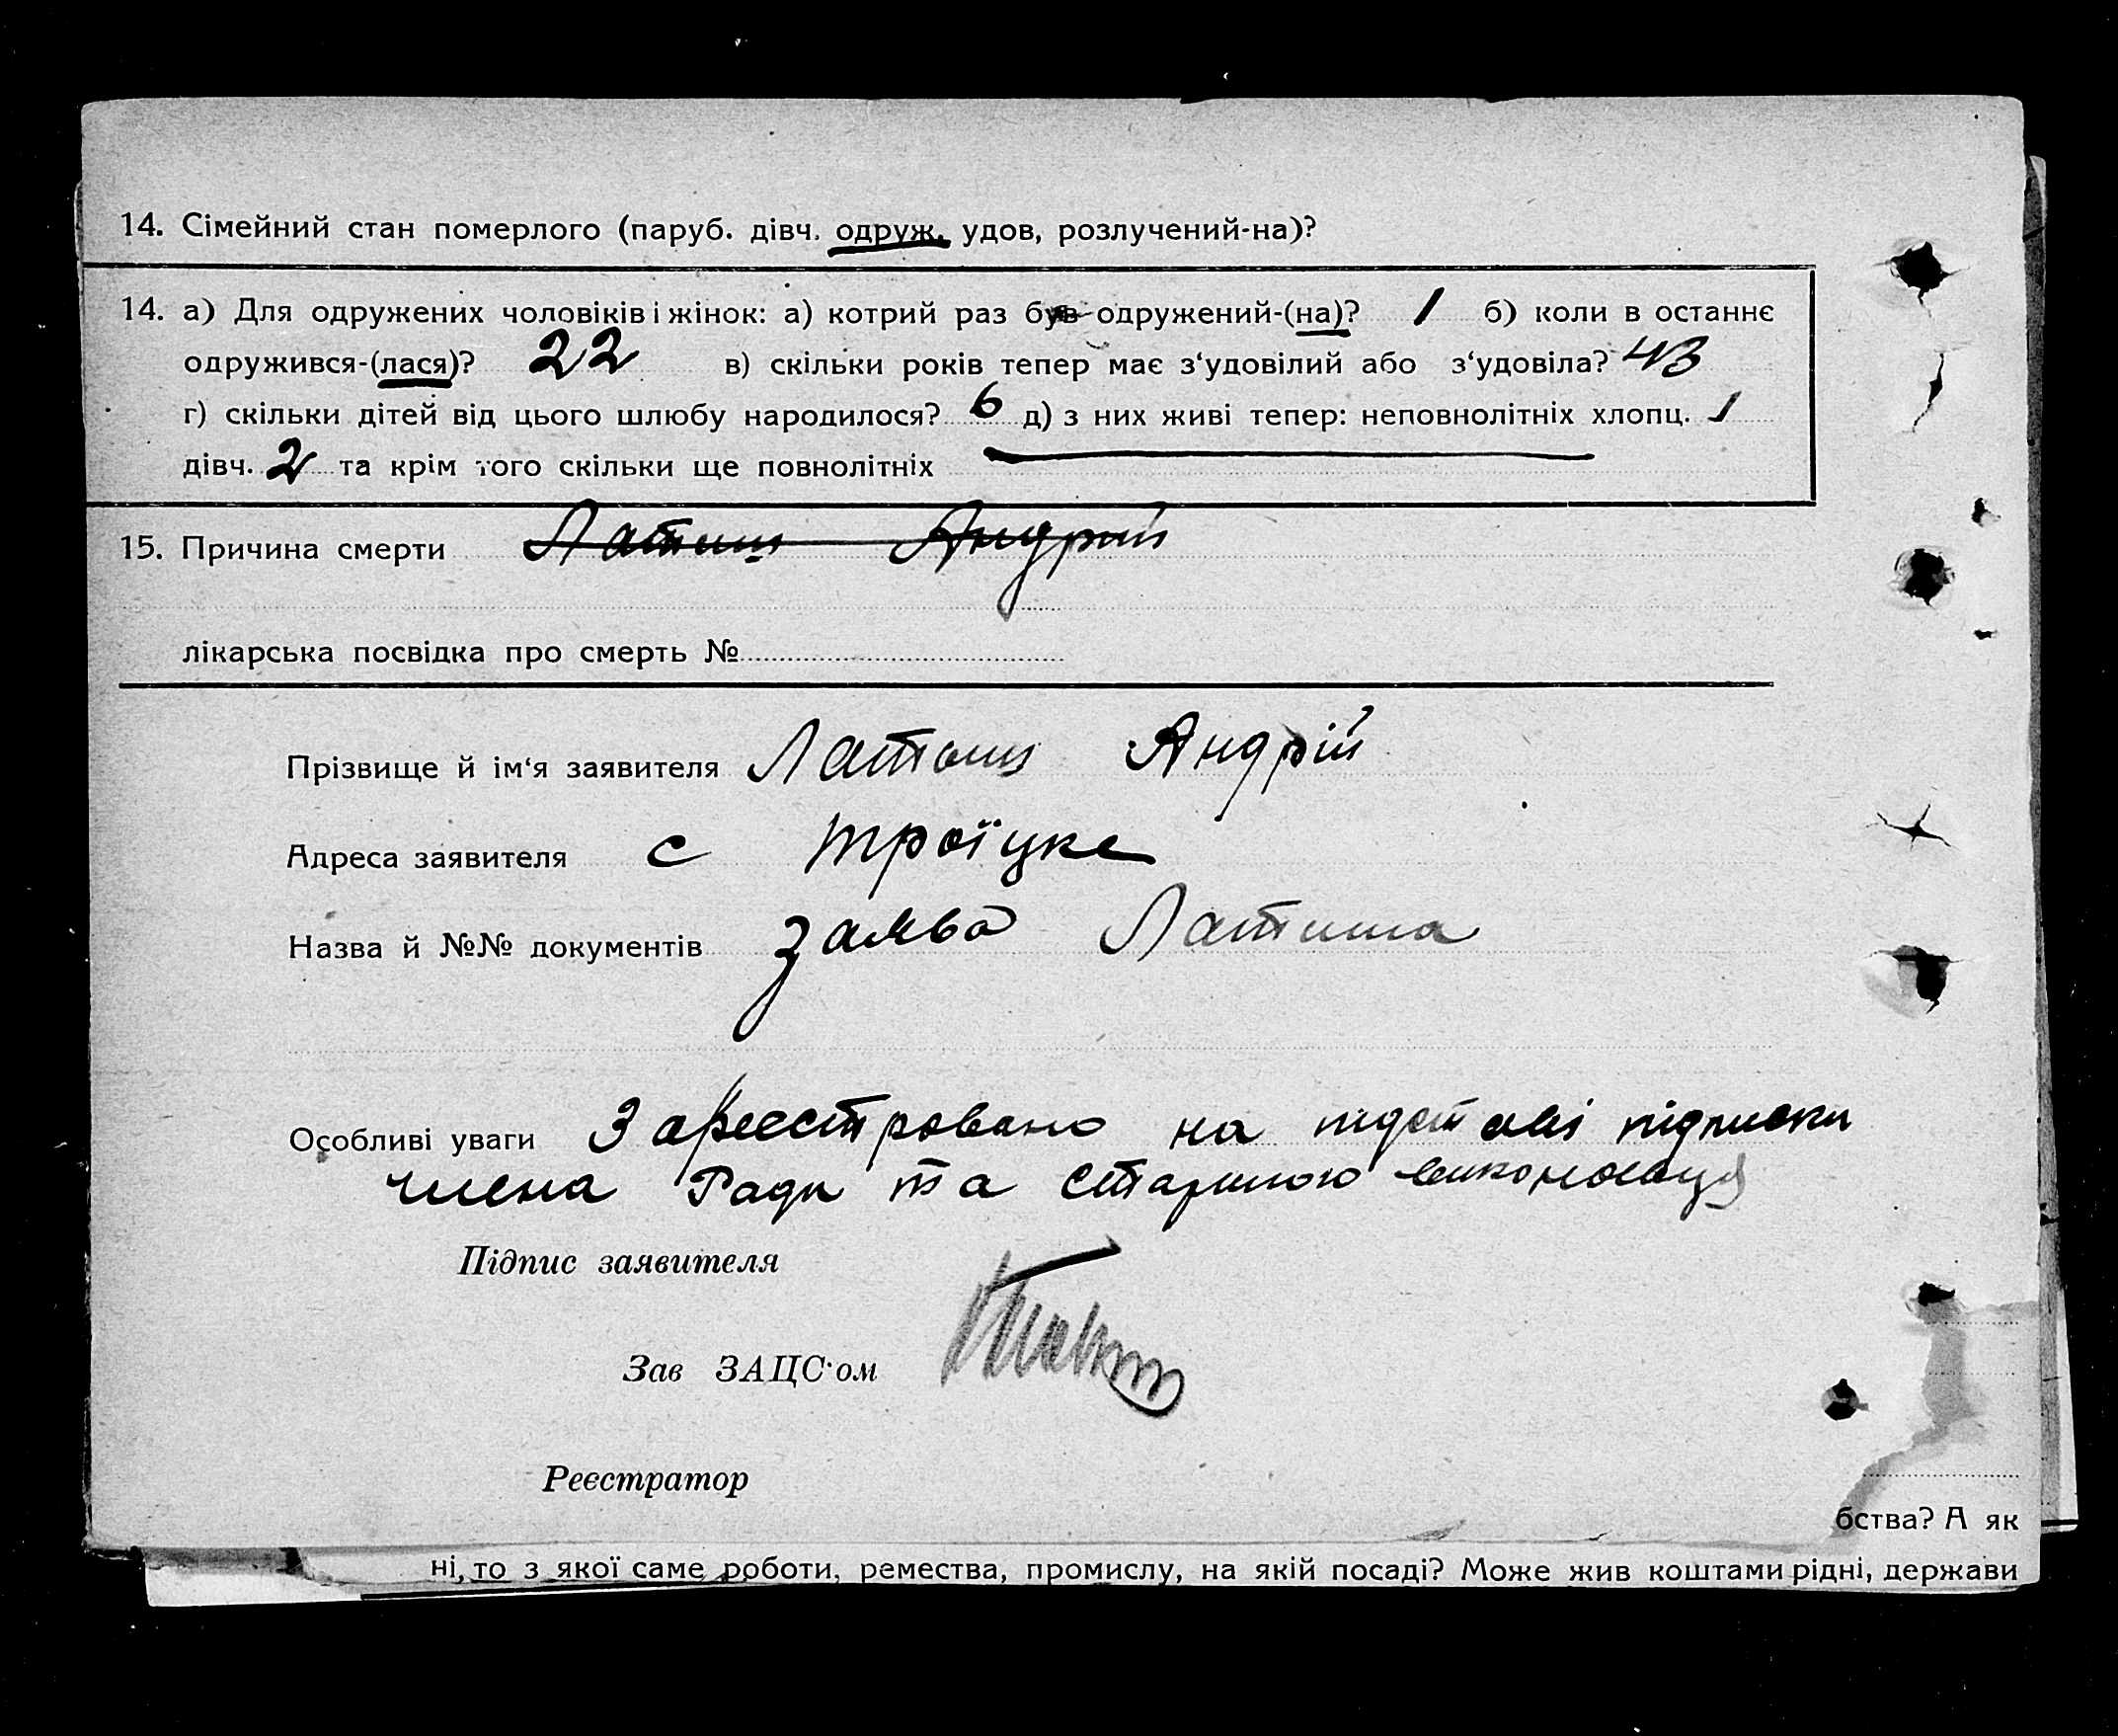 14. Сімейний стан померлого (паруб. дівч. одруж. удов, розлучений-на)?
14. а) Для одружених чоловіків і жінок: а) котрий раз був одружений-(на)? 1 б) коли в останнє
одружився-(лася)? 22 в) скільки років тепер має з‘удовілий або з‘удовіла? 43
г) скільки дітей від цього шлюбу народилося? 6 д) з них живі тепер: неповнолітніх хлопц. 1
дівч. 2 та крім того скільки ще повнолітніх
15. Причина смерти Латиш Андрій
лікарська посвідка про смерть №
Прізвище й ім‘я заявителя Латиш Андрій
Адреса заявителя с Троїцке
Назва й №№ документів заява Латиша
Особливі уваги Зареєстровано на підставі підписки
члена Ради та старшого виконавця
Підпис заявителя
Зав ЗАЦС‘ом
Реєстратор
бства? А як
ні, то з якої саме роботи, ремества, промислу, на якій посаді? Може жив коштами рідні, держави